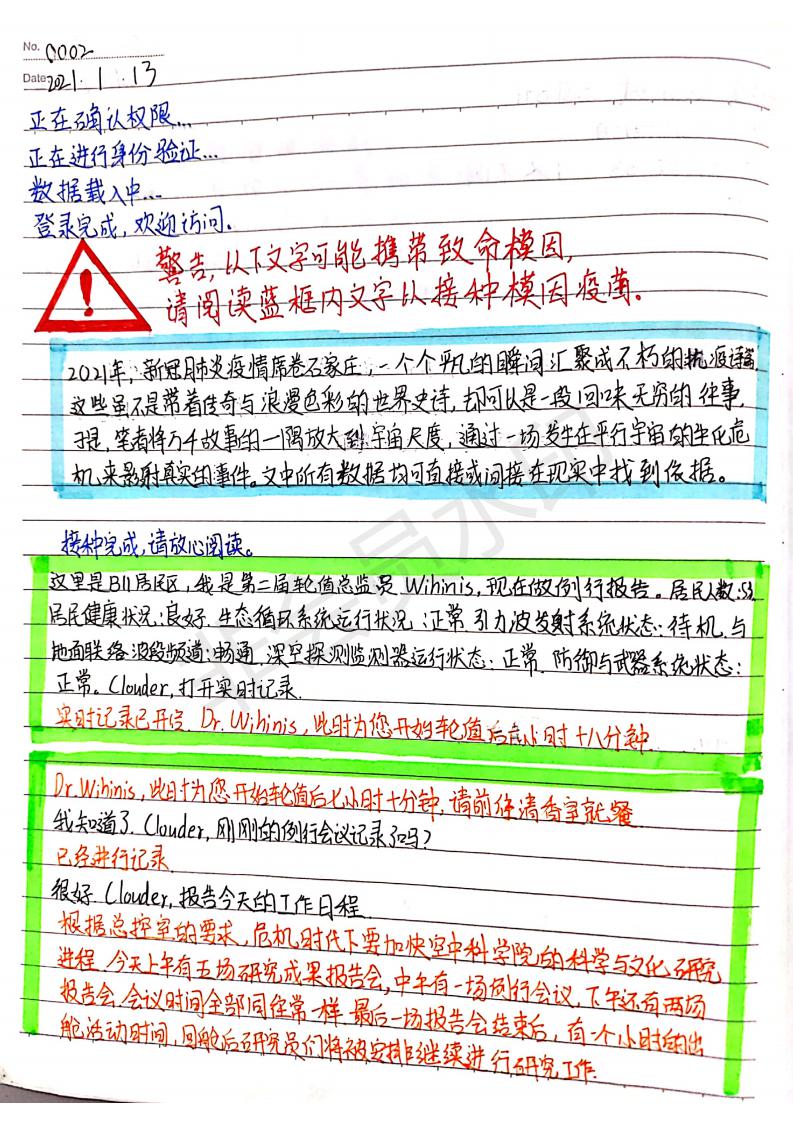 No. 0002
Date 2021.1.13
正在确认权限...
正在进行身份验证...
数据载入中...
登录完成,欢迎访问。
警告,以下文字可能携带致命模因,
请阅读蓝框内文字以接种模因疫菌。
2021年,新冠肺炎疫情席卷石家庄,一个个平凡的瞬间汇聚成不朽的抗疫诗篇,
这些虽不是带着传奇与浪漫色彩的世界史诗,却可以是一段回味无穷的往事,
于是,笔者将万千故事的一隅放大到宇宙尺度,通过一场发生在平行宇宙的生化危
机,来影射真实的事件。文中所有数据均可直接或间接在现实中找到依据。
接种完成,请放心阅读。
这里是B11居民区,我是第二届轮值总监员 Wihinis,现在做例行报告。居民人数:53.
居民健康状况:良好.生态循环系统运行状况:正常.引力波发射系统状态:待机.与
地面联络波段频道:畅通.深空探测监测器运行状态:正常.防御与武器系统状态:
正常。Clouder,打开实时记录.
实时记录已开启. Dr. Wihinis,此时为您开始轮值后 小时十八分钟.
Dr.Wihinis,此时为您开始轮值后七小时十分钟,请前往清香室就餐
我知道了. Clouder,刚刚的例行会议记录了吗?
已经进行记录.
很好.Clouder,报告今天的工作日程.
根据总控室的要求,危机时代下要加快空中科学院的科学与文化研究
进程.今天上午有五场研究成果报告会,中午有一场例行会议,下午还有两场
报告会.会议时间全部同往常一样.最后一场报告会结束后,有一个小时的出
舱活动时间,回舱后研究员们将被安排继续进行研究工作.
非会员水印